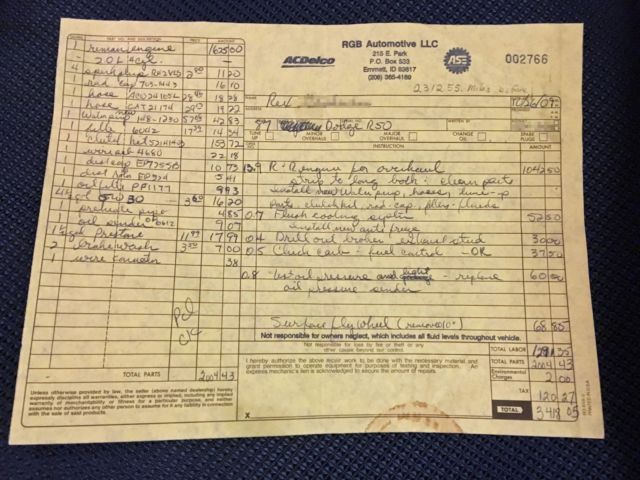 QTY. PART NO. AND DESCRIPTION PRICE AMOUNT
1 reman engine 1625 00
- 2.0L 4cyl. -
4 sparkplug 2 80 11 20
1 rad cap 703-1443 16 10
1 hose 18 28
1 hose CAT21174 19 22
1 Watpump 148-1230 42 83
1 6042 14 34
153 72
4680 22 18
dist cap EP7255B 10 73
dist 5 41
oil filt PP1177 9 93
5W30 3 60 16 20
4 85
oil sender 9 07
Prestone 11 99 17 99
2 brakewash 3 50 7 00
1 wire 38
Pd
CK
TOTAL PARTS 2004 43
RGB Automotive LLC
215 E. Park
P.O. Box 533
Emmett, ID 83617
(208) 365-4169
ACDelco
ASE
002766
231255 Miles
Rex
87 Dodge R50
TUNE UP MINOR OVERHAUL MAJOR OVERHAUL CHANGE OIL SPARE PLUGS
INSTRUCTION AMOUNT
13.9 R&R engine for overhaul 1042 50
strip to long block: clean parts
install new wat pump, hoses, tune-up
parts, clutch kit, rad cap, filters - fluids
0.7 Flush cooling system 52 50
install new anti freeze
0.4 Drill out broken exhaust stud 30 00
0.5 Check carb - fuel control - OK 37 50
0.8 Test oil pressure and light - replace 60 00
oil pressure sender
Surface flywheel (removed 68.85
Not responsible for owners neglect, which includes all fluid levels throughout vehicle.
Not responsible for loss by fire or theft or any other cause beyond our control.
I hereby authorize the above repair work to be done with the necessary material and
grant permission to operate equipment for purposes of testing and inspection. An
express mechanic's lien is acknowledged to secure the amount of repairs.
X
TOTAL LABOR 1291 35
TOTAL PARTS 2004 43
Environmental Charges 2 00
TAX 120 27
TOTAL 3418 05
Unless otherwise provided by law, the seller (above named dealership) hereby
expressly disclaims all warranties, either express or implied, including any implied
warranty of merchantability or fitness for a particular purpose, and neither
assumes nor authorizes any other person to assume for it any liability in connection
with the sale of said products.